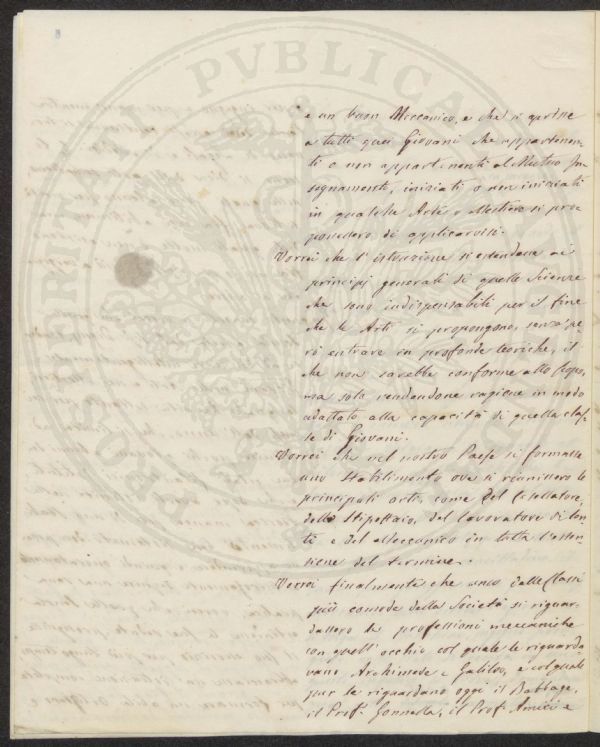 8
e un buon Meccanico, e che si aprisse
a tutti quei Giovani che appartenen-
ti o non appartenenti al Mutuo In
segnamento, iniziati o non iniziati
in qualche Arte o Mestiere si pro-
ponessero di applicarvisi.
Vorrei che l'istruzione si estendesse ai
principj generali di quelle Scienze
che sono indispensabili per il fine
che le Arti si propongono, senza pe-
rò entrare in profonde teoriche, il
che non sarebbe conforme allo scopo,
ma solo rendendone ragione in modo
adattato alla capacità di quella clas-
se di Giovani.
Vorrei che nel nostro Paese si formasse
uno Stabilimento ove si riunissero le
principali arti, come del Cesellatore,
dello Stipettaio, del lavoratore di len-
ti e del Meccanico in tutta l'esten-
sione del termine.
Vorrei finalmente che anco dalle Classi
più comode della Società si riguar-
dassero le professioni meccaniche
con quell'occhio col quale le riguarda-
vano Archimede e Galileo, e col quale
pur le riguardano oggi il Babbage,
il Prof. Gonnella, il Prof. Amici e
PROSPERITATI PVBLICAE